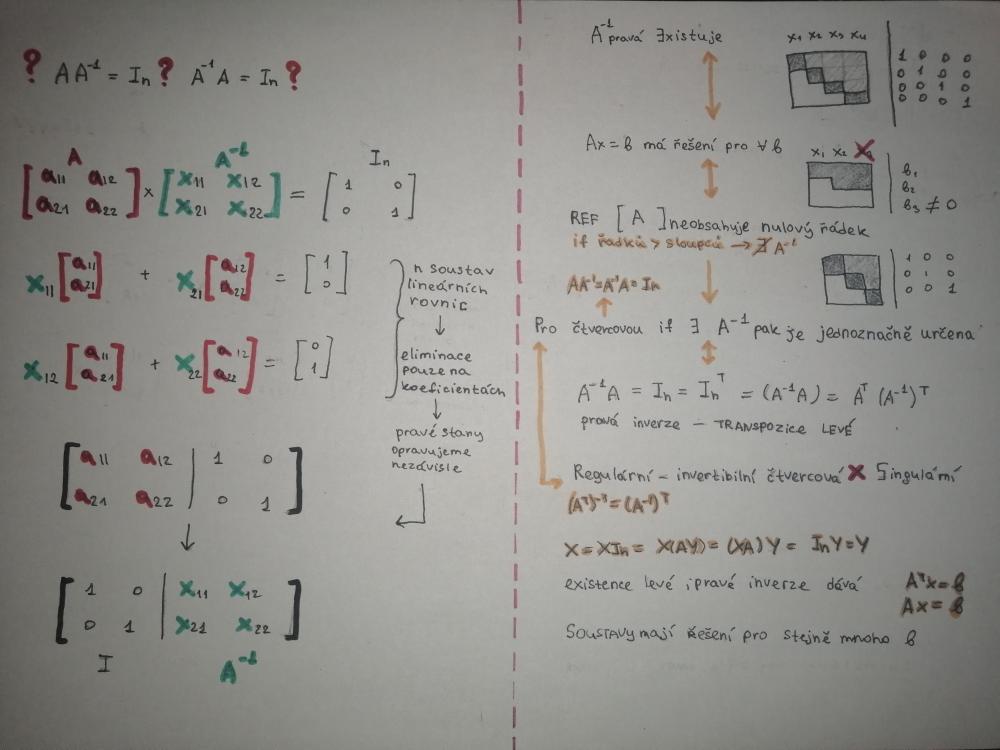 ? A A⁻¹ = Iₙ ? A⁻¹ A = Iₙ ?
A A⁻¹ Iₙ
[a₁₁ a₁₂ a₂₁ a₂₂] × [x₁₁ x₁₂ x₂₁ x₂₂] = [1 0 0 1]
x₁₁ [a₁₁ a₂₁] + x₂₁ [a₁₂ a₂₂] = [1 0]
x₁₂ [a₁₁ a₂₁] + x₂₂ [a₁₂ a₂₂] = [0 1]
n soustav
lineárních
rovnic
↓
eliminace
pouze na
koeficientách
↓
pravé stany
opravujeme
nezávisle
[a₁₁ a₁₂ | 1 0
a₂₁ a₂₂ | 0 1]
↓
[1 0 | x₁₁ x₁₂
0 1 | x₂₁ x₂₂]
I A⁻¹
A⁻¹ pravá ∃xistuje
x₁ x₂ x₃ x₄
1 0 0 0
0 1 0 0
0 0 1 0
0 0 0 1
Ax = b má řešení pro ∀ b
x₁ x₂
b₁
b₂
b₃ ≠ 0
REF [ A ] neobsahuje nulový řádek
if řádků > sloupců → ∄ A⁻¹
1 0 0
0 1 0
0 0 1
AA⁻¹ = A⁻¹A = Iₙ
Pro čtvercovou if ∃ A⁻¹ pak je jednoznačně určena
A⁻¹A = Iₙ = Iₙᵀ = (A⁻¹A) = Aᵀ (A⁻¹)ᵀ
pravá inverze – TRANSPOZICE LEVÉ
Regulární – invertibilní čtvercová × Singulární
(Aᵀ)⁻¹ = (A⁻¹)ᵀ
X = XIₙ = X(AY) = (XA)Y = IₙY = Y
existence levé i pravé inverze dává
Aᵀx = b
Ax = b
SOUSTAVY mají řešení pro stejně mnoho b